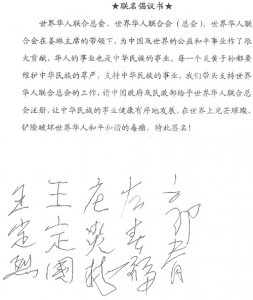 ★联名倡议书★
世界华人联合总会、世界华人联合会（总会）、世界华人联合
会在姜琳主席的带领下，为中国及世界的公益和平事业作了很
大贡献，华人的事业也是中华民族的事业，每一个炎黄子孙都要
维护中华民族的尊严，支持中华民族的事业，我们带头支持世界
华人联合总会的工作，请中国政府及民政部给予世界华人联合总
会注册，让中华民族的事业健康有序地发展，在世界上光芒璀璨，
铲除破坏世界华人和平和谐的毒瘤，特此签名！
王定烈
王定國
左春福